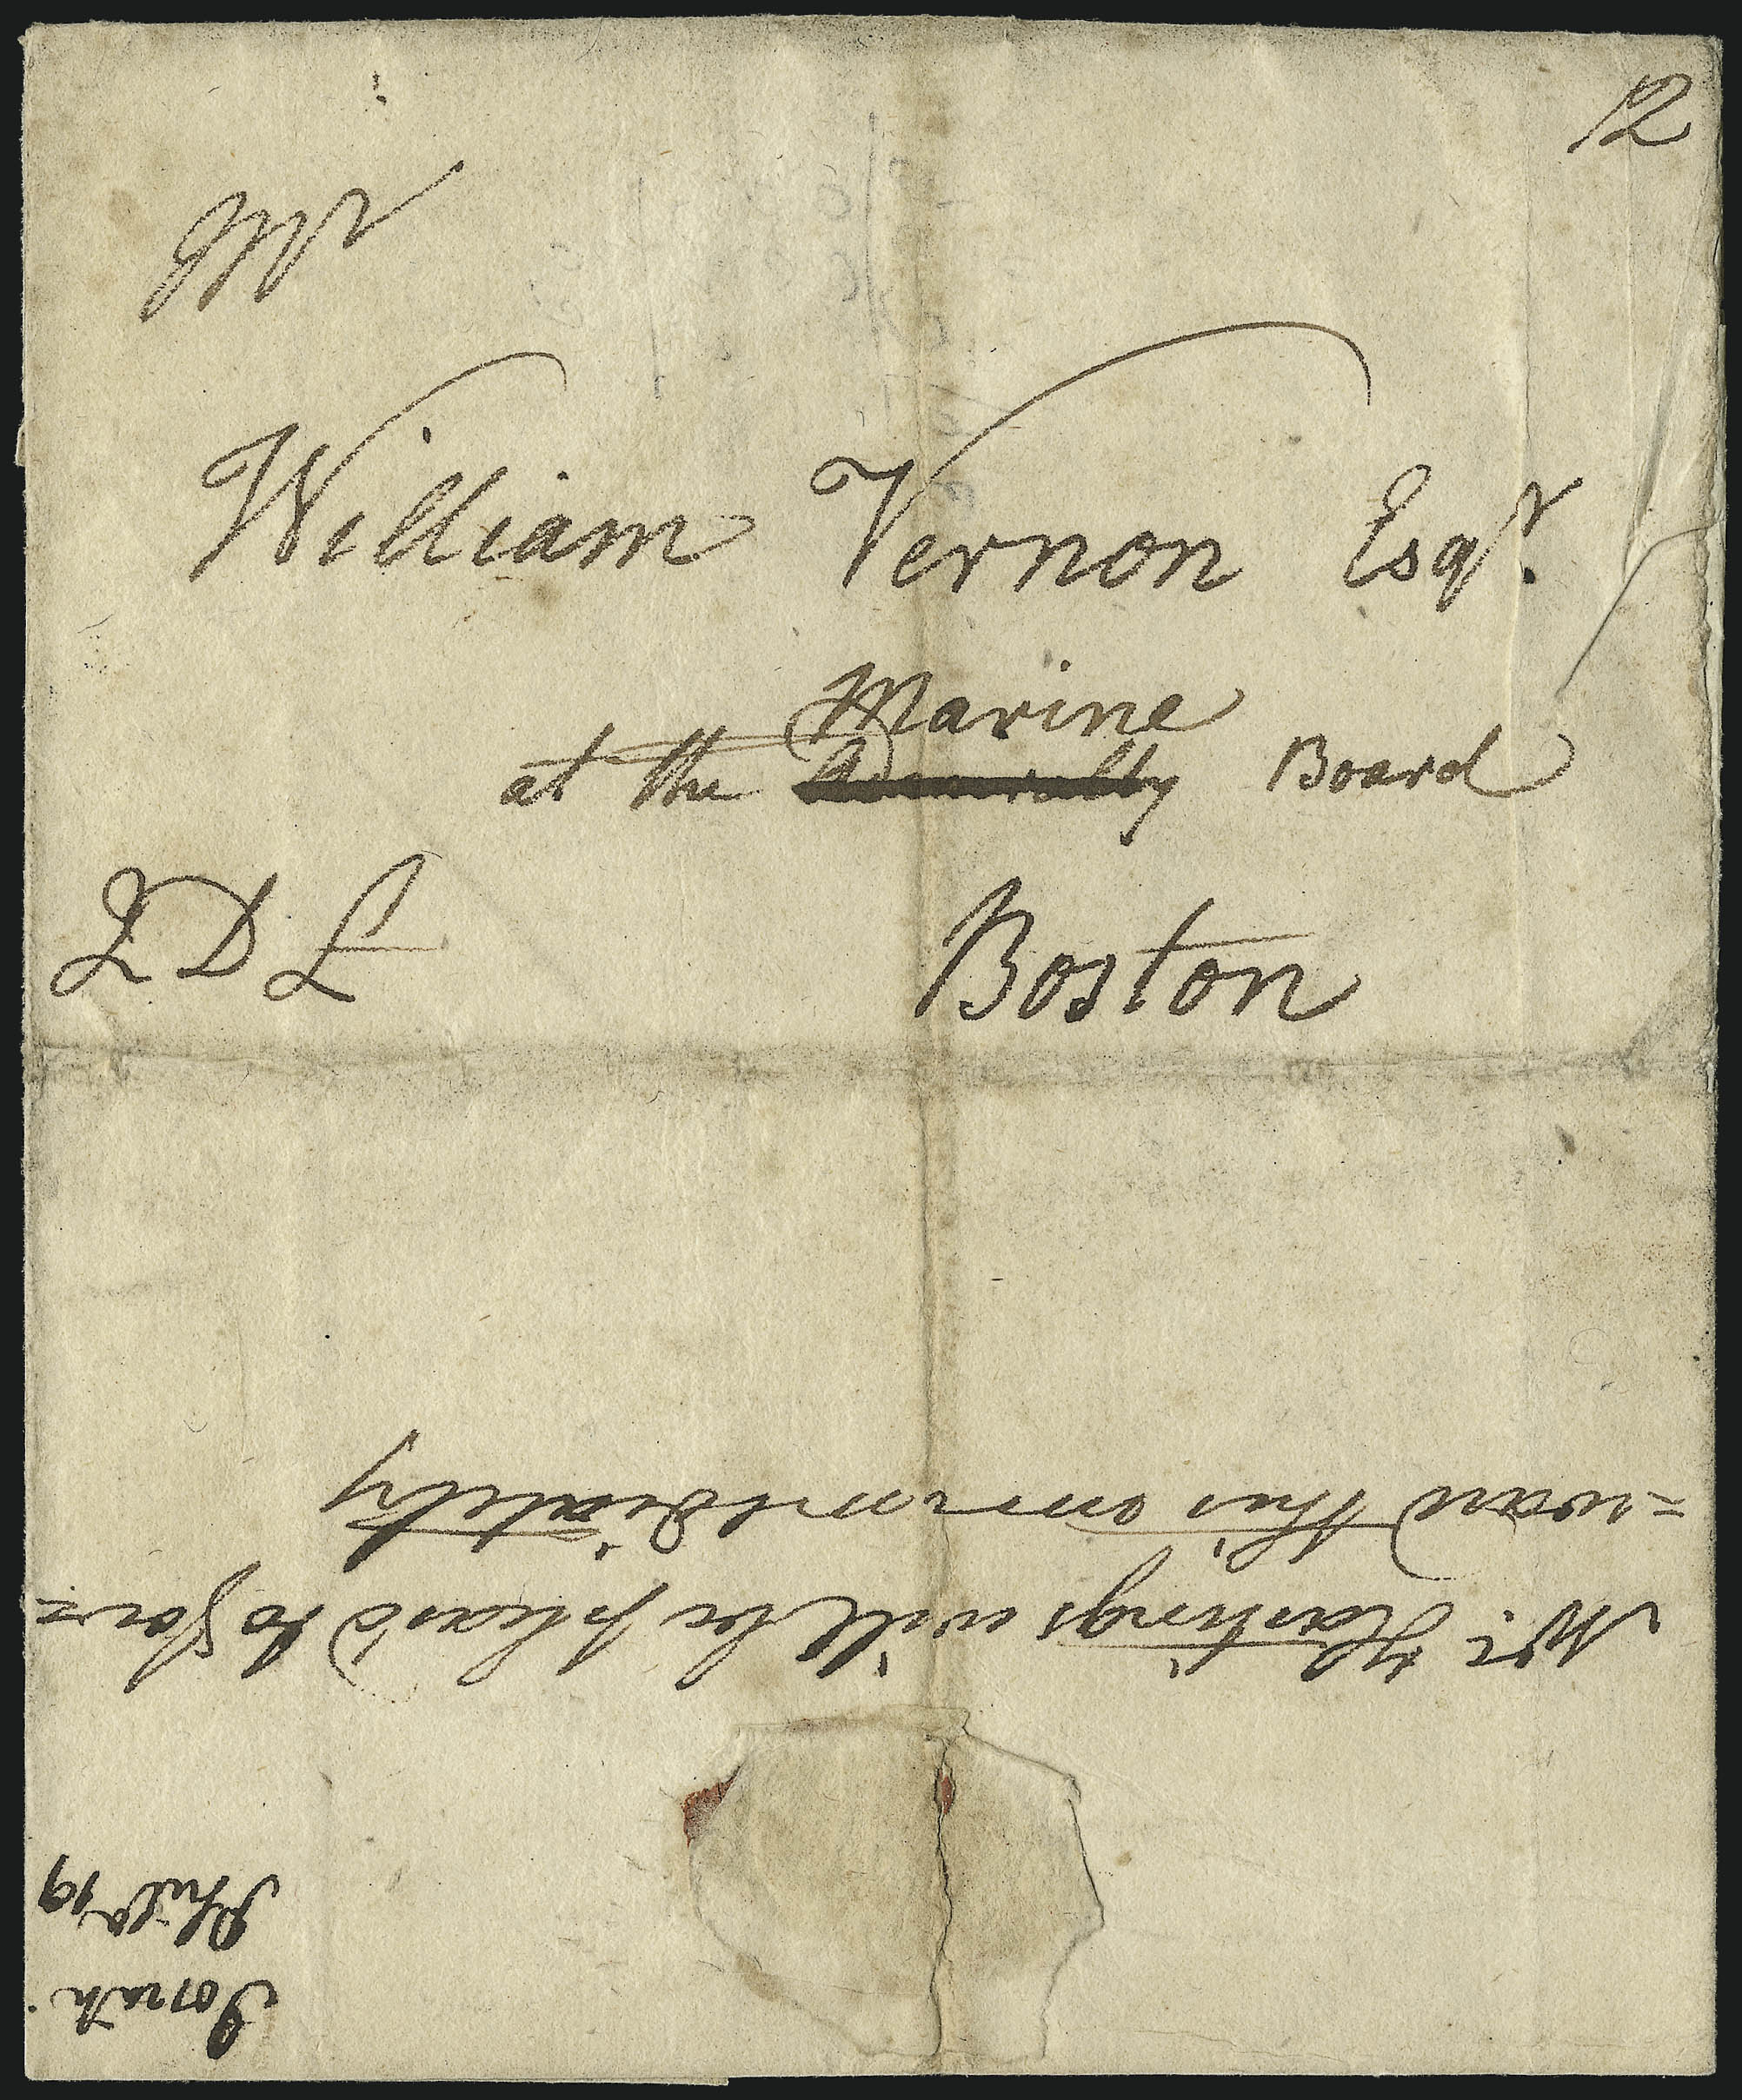 12
William Vernon Esqr.
Marine
at the Admiralty Board
Boston
Mr. Hastings will be pleas'd to for=
=ward this immediately
Jonath.
Phila 19